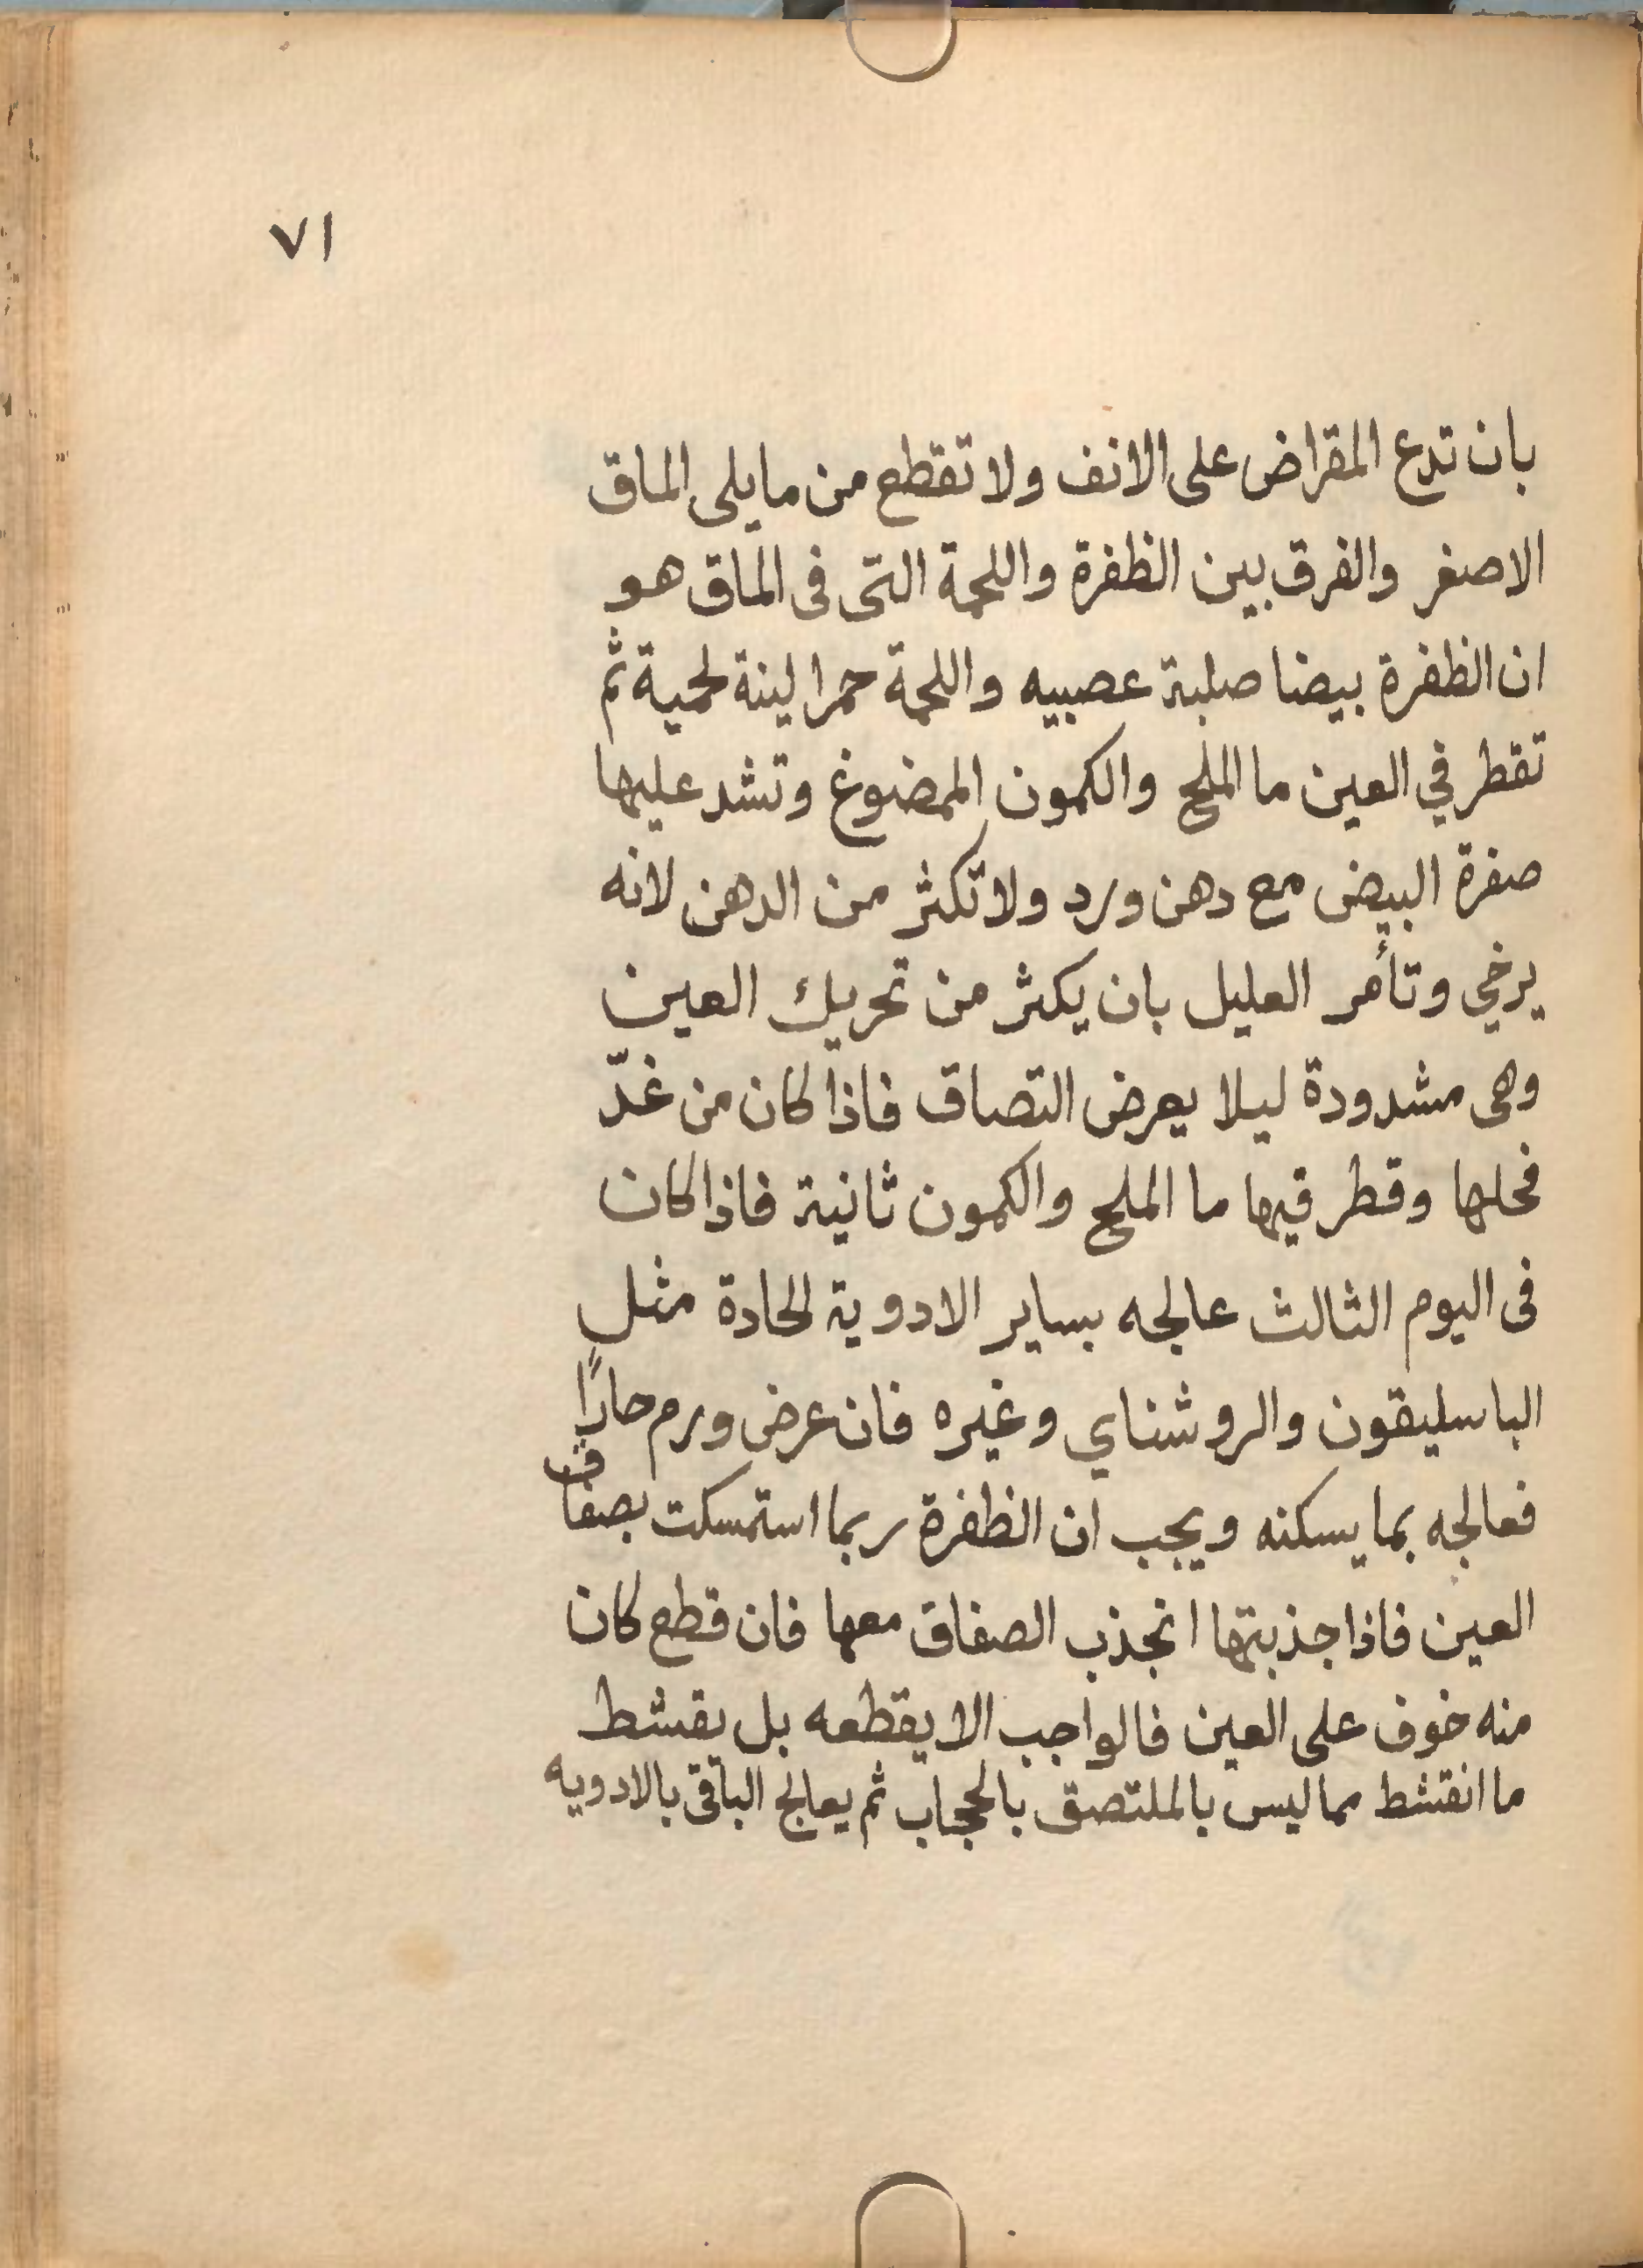 ٧١
بان تدع المقراض على الانف ولا تقطع من ما يلى الماق
الاصغر والفرق بين الظفرة واللحمة التى فى الماق هو
ان الظفرة بيضا صلبة عصبيه واللحمة حمرا لينة لحمية ثم
تقطر في العين ما الملح والكمون الممضوغ وتشد عليها
صفرة البيض مع دهن ورد ولا تكثر من الدهن لانه
يرخي وتأمر العليل بان يكثر من تحريك العين
وهى مشدودة ليلا يعرض التصاق فاذا كان من غدّ
فحلها وقطر فيها ما الملح والكمون ثانية فاذا كان
فى اليوم الثالث عالجه بساير الادوية الحادة مثل
الباسليقون والروشناي وغيره فان عرض ورم حارًا
فعالجه بما يسكنه ويجب ان الظفرة ربما استمسكت بصفاق
العين فاذا جذبتها انجذب الصفاق معها فان قطع كان
منه خوف على العين فالواجب الا يقطعه بل يقشط
ما انقشط مما ليس بالملتصق بالحجاب ثم يعالج الباقى بالادويه